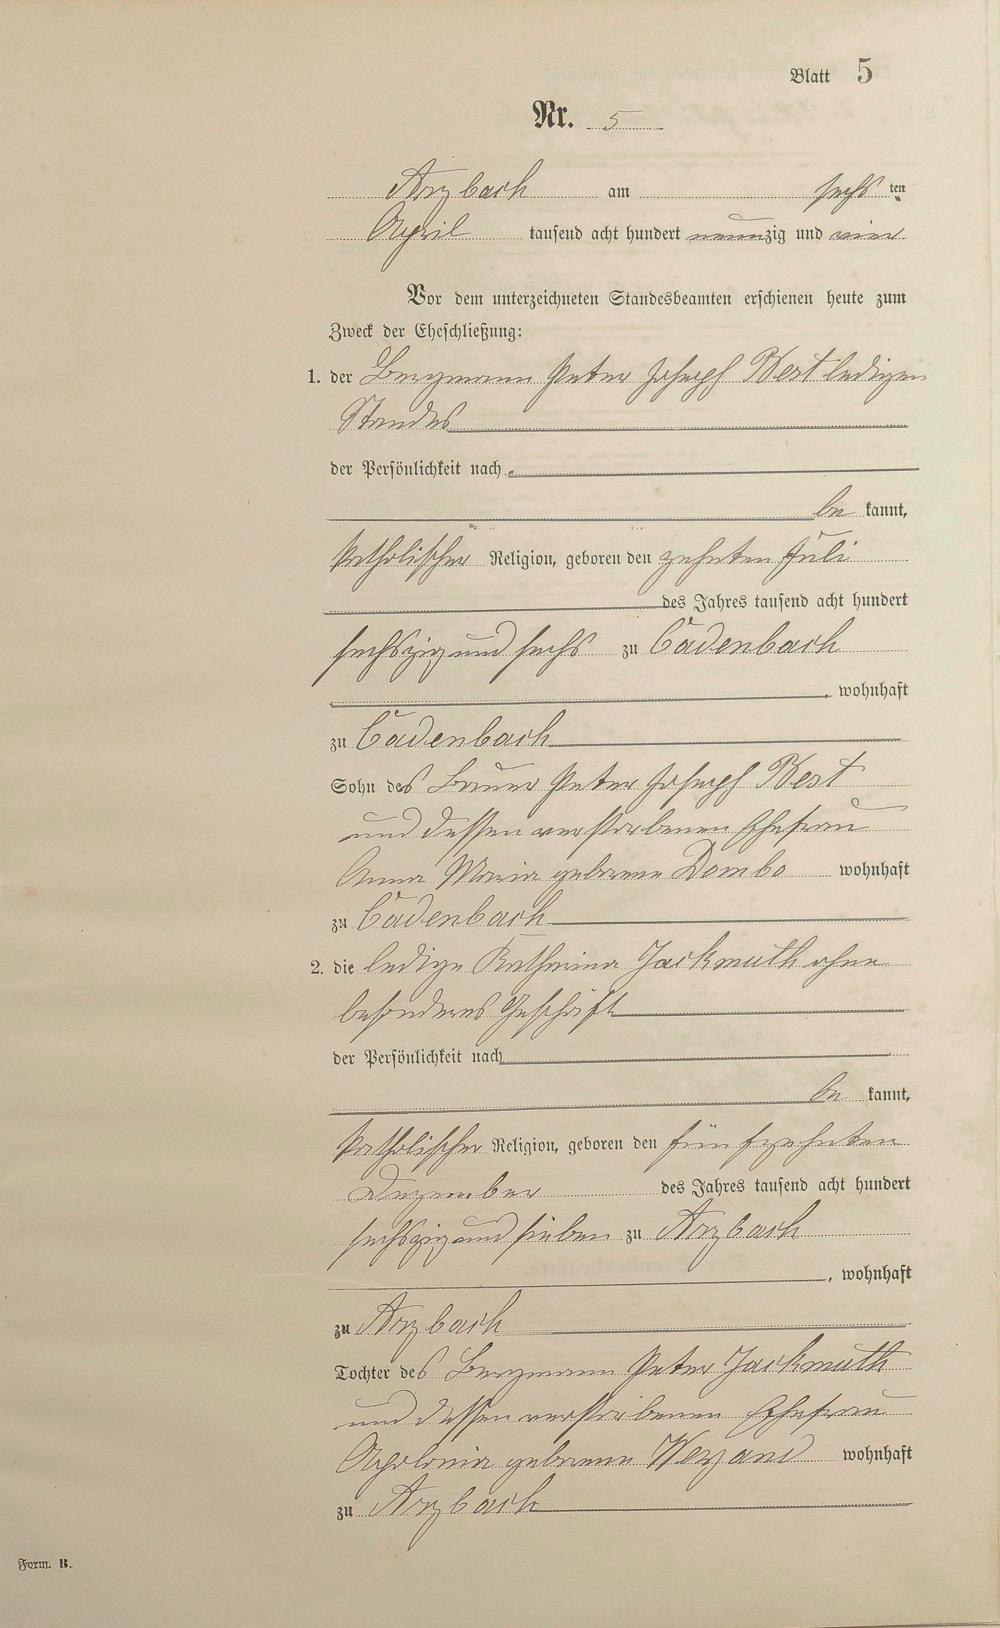 Blatt 5
Nr. 5
Arzbach am sechs ten
April tausend acht hundert neunzig und vier
Vor dem unterzeichneten Standesbeamten erschienen heute zum
Zweck der Eheschließung:
1. der Bergmann Peter Joseph Best ledigen
Standes
der Persönlichkeit nach
be kannt,
katholischer Religion, geboren den zehnten Juli
des Jahres tausend acht hundert
sechszig und sechs zu Cadenbach
, wohnhaft
zu Cadenbach
Sohn des Bauer Peter Joseph Best
und dessen verstorbenen Ehefrau
Anna Maria geborene Dombo wohnhaft
zu Cadenbach
2. die ledige Katharina Jackmuth ohne
besonderes Geschäft
der Persönlichkeit nach
be kannt,
katholischer Religion, geboren den fünfzehnten
Dezember des Jahres tausend acht hundert
sechszig und sieben zu Arzbach
, wohnhaft
zu Arzbach
Tochter des Bergmann Peter Jackmuth
und dessen verstorbenen Ehefrau
Apolonia geborene Weyand wohnhaft
zu Arzbach
Form. B.